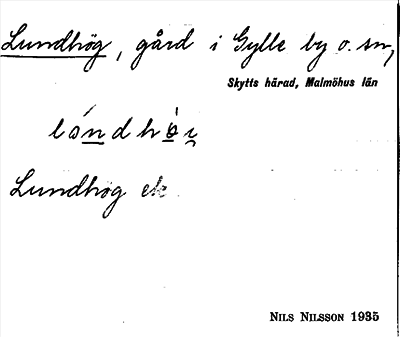 Lundhög, gård i Gylle by o. sn,
Skytts härad, Malmöhus län
Lundhög ek
NILS NILSSON 1935